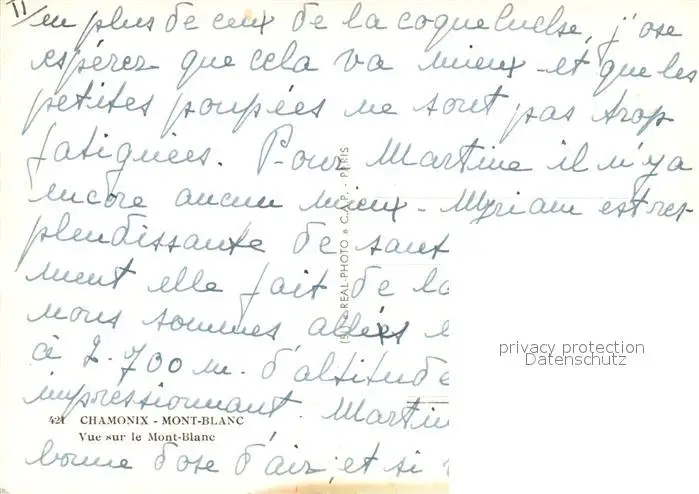 II
en plus de ceux de la coqueluche, j'ose
espérer que cela va mieux et que les
petites poupées ne sont pas trop
fatiguées. Pour Martine il n'y a
encore aucun mieux - Myriam est res-
plendissante de sant
ment elle fait de la
nous sommes allées
à 2.700 m. d'altitude
impressionnant. Martin
bonne dose d'air, et si
(5) « REAL-PHOTO » C.A.P. - PARIS
421 CHAMONIX - MONT-BLANC
Vue sur le Mont-Blanc
privacy protection
Datenschutz